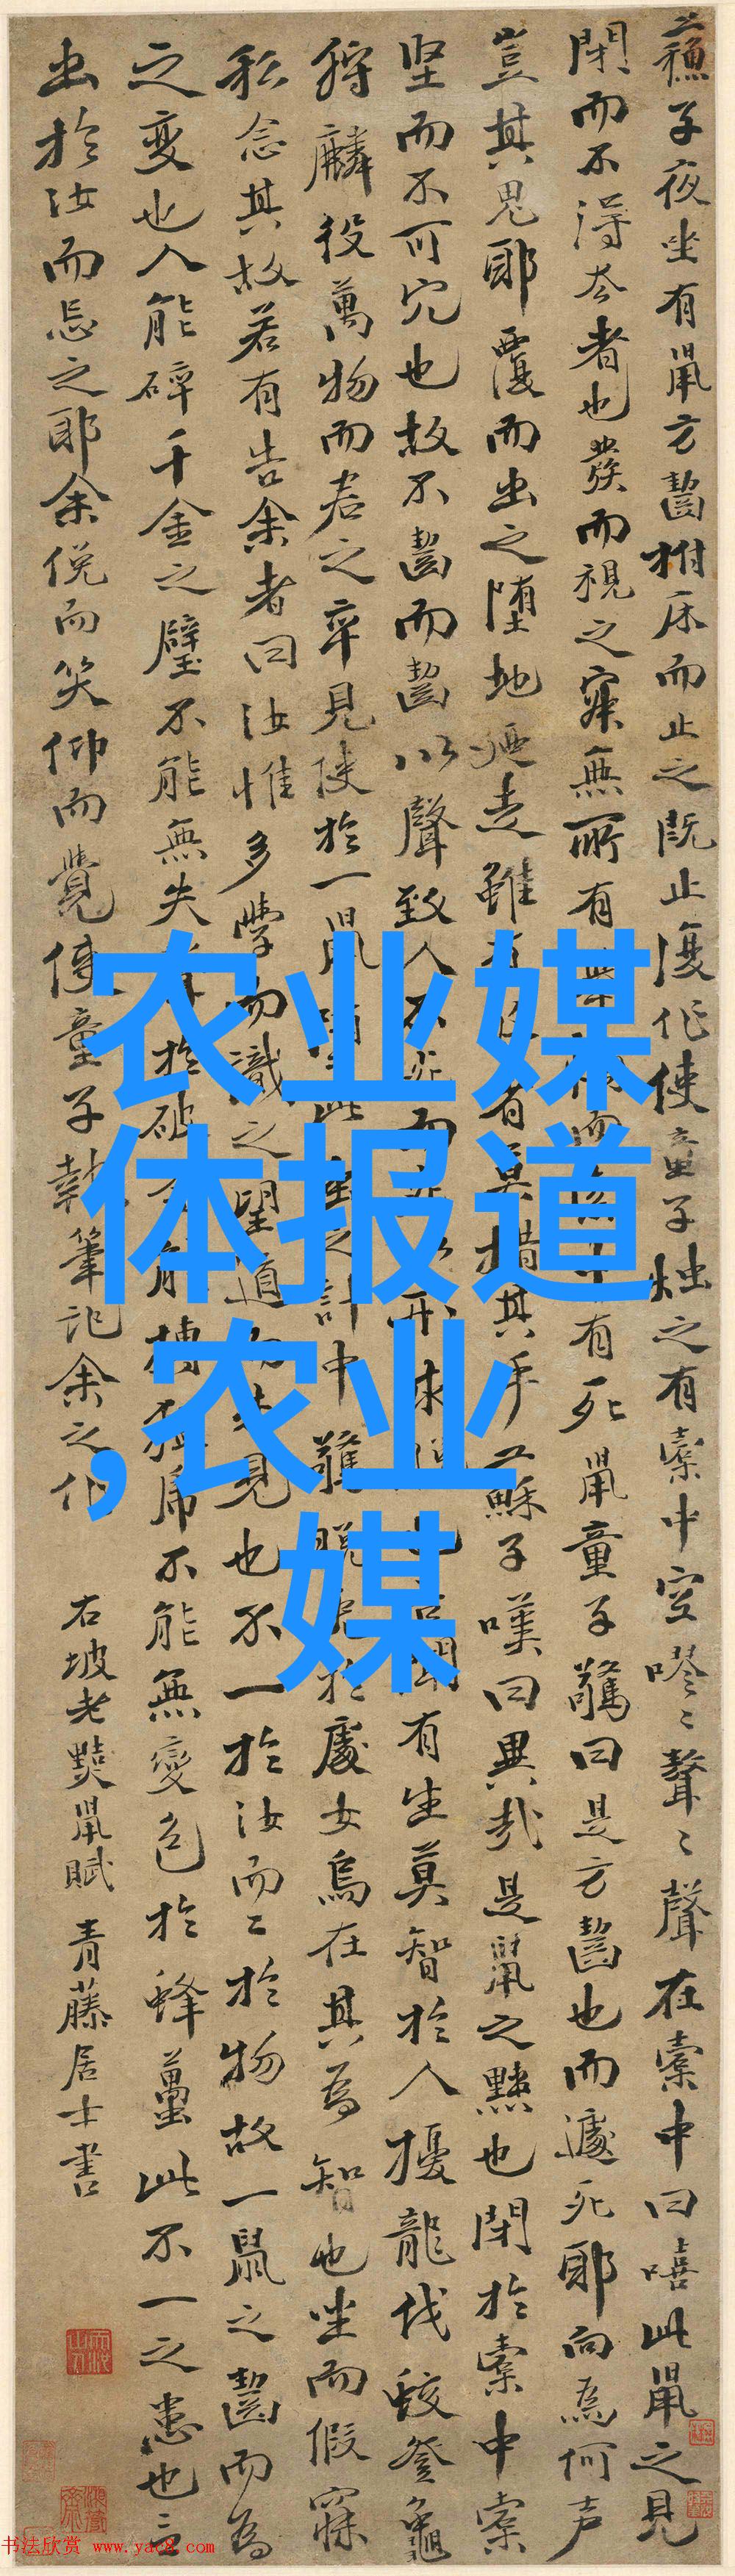 蘇子夜坐有鼠方齧拊床而止之既止復作使童子燭之有橐中空嘐〻聱〻聲在橐中曰嘻此鼠之見
閉而不得去者也發而視之寂無所有而中有死鼠童子驚曰是方齧也而遽死耶向為何声
豈其鬼耶覆而出之墮地廼走雖有莫措其手蘇子嘆曰異哉是鼠之黠也閉於橐中橐
坚而不可穴也故不齧而齧以聲致人不死而形求也聞有生莫智於人擾龍伐蛟登龜
狩麟役萬物而君之卒見使於一鼠墮此蟲之計中驚脫兔於處女烏在其為智也坐而假寐
私念其故若有告余者曰汝惟多學而識之望道而未見也不一於汝而二於物故一鼠之齧而為
之變也人能碎千金之璧不能無失聲於破能搏猛虎不能無變色於蜂蠆此不一之患也言
出於汝而忘之耶余俛而笑仰而覺使童子執筆記余之作
右坡老黠鼠賦 青藤居士書
农业媒
体报道
,农业
媒
书法欣赏 www.yac8.com